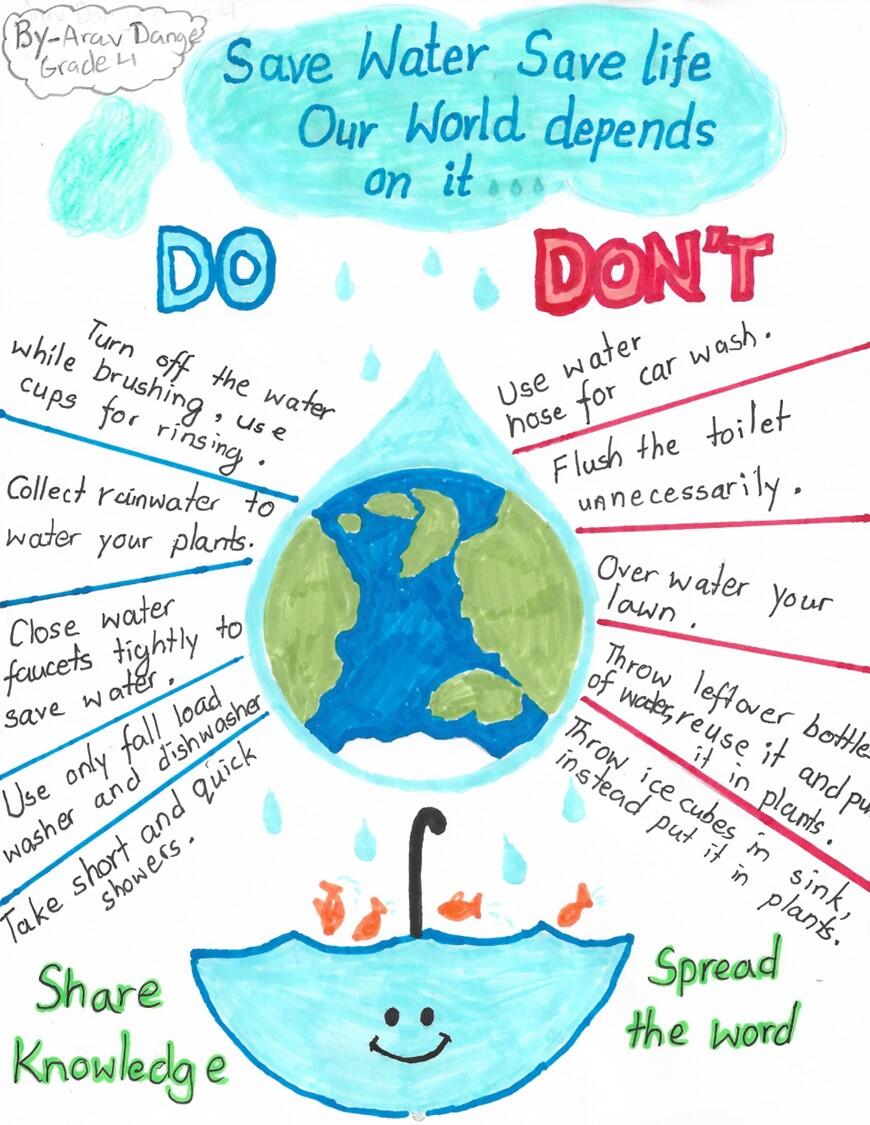 By-Arav Dange
Grade 4
Save Water Save life
Our World depends
on it ...
DO
Turn off the water
while brushing, use
cups for rinsing.
Collect rainwater to
water your plants.
Close water
faucets tightly to
save water.
Use only fall load
washer and dishwasher
Take short and quick
showers.
DON'T
Use water
hose for car wash.
Flush the toilet
unnecessarily.
Over water your
lawn.
Throw leftover bottle
of water, reuse it and pu
it in plants.
Throw ice cubes in sink,
instead put it in plants.
Share
Knowledge
Spread
the word